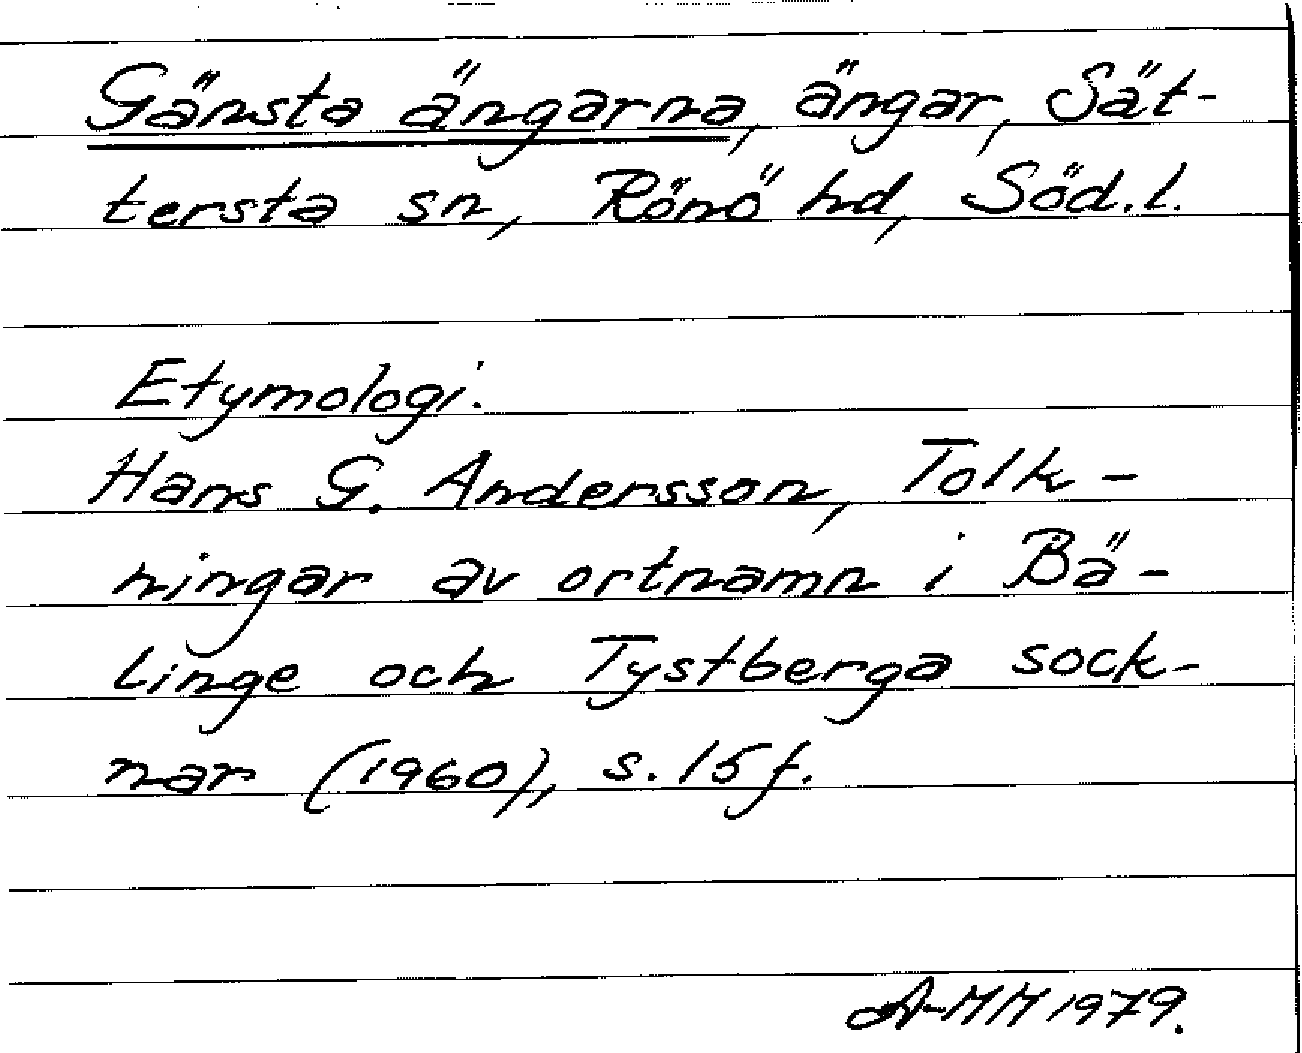 Gänsta ängarna, ängar, Sät-
tersta sn, Rönö hd, Söd.l.
Etymologi:
Hans G. Andersson, Tolk-
ningar av ortnamn i Bä-
linge och Tystberga sock-
nar (1960), s. 15 f.
A-MH 1979.